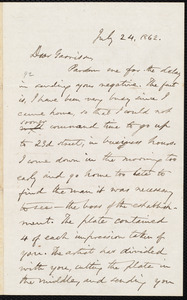 July 24, 1862.
Dear Garrison,
Pardon me for the delay
in sending you negative. The fact
is, I have been very busy since I
came home, so that I could not
sooner command time to go up
to 23d street, in business hours.
I come down in the morning too
early and go home too late to
find the man it was necessary
to see — the boss of the establish-
ment. The plate contained
4 of each impression taken of
you. The artist has divided
with you, cutting the plate in
the middle, and sending you